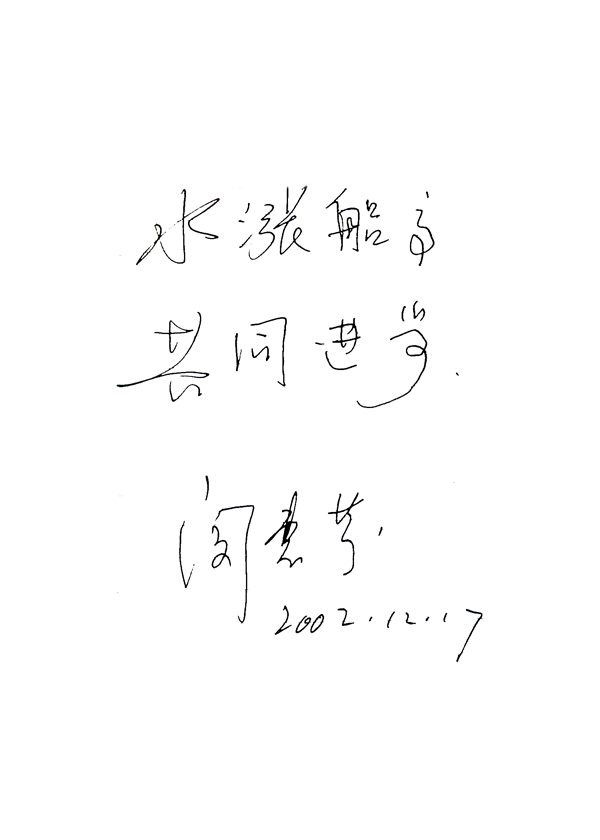 水涨船高
共同进步.
闵惠芬
2002.12.17